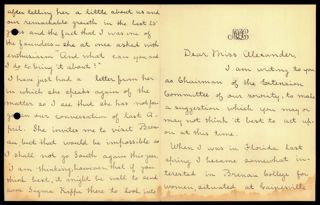 after telling her a little about us and
our remarkable growth in the last 15
years and the fact that I was one of
the founders - she at once asked with
enthusiasm And what can you and
I do to bring it about"
I have just had a letter from her
in which she speaks again of the
matter so I see that she has not for-
gotten our conversation of last A-
pril. She invites me to visit Bren
au but that would be impossible as
I shall not go South again this year
I am thinking however, that if you
think best, it might be well to send
some Sigma Kappa there to look into
Dear Miss Alexander,
I am writing to you
as Chairman of the Extension
Committee of our sorority, to make
a suggestion which you may or
may not think it best to act up-
on at this time.
When I was in Florida last
spring I became somewhat in-
terested in Brenau College for
women, situated at Gainesville